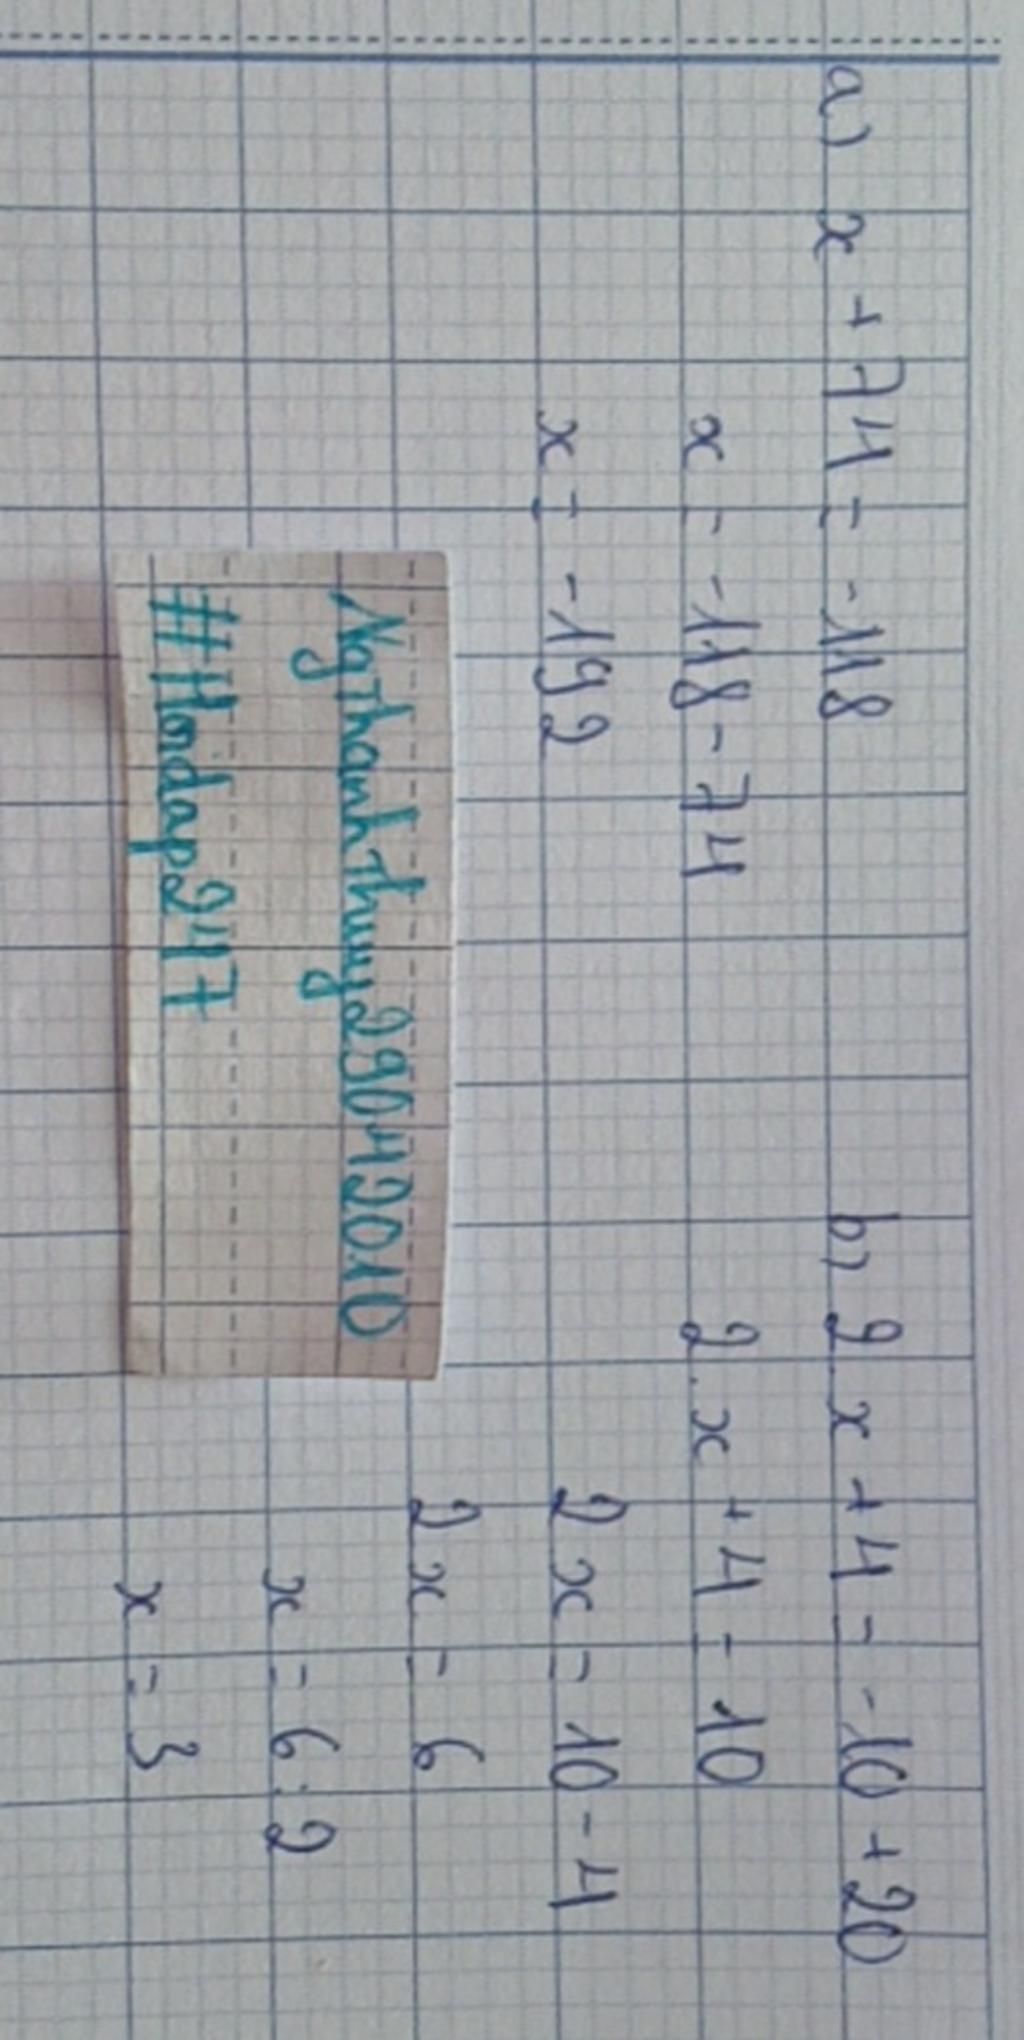 a) x + 74 = -118
x = -118 - 74
x = -192
b) 2.x + 4 = -10 + 20
2.x + 4 = 10
2x = 10 - 4
2x = 6
x = 6:2
x = 3
Ngthanhthuy29042010
#Hoidap247